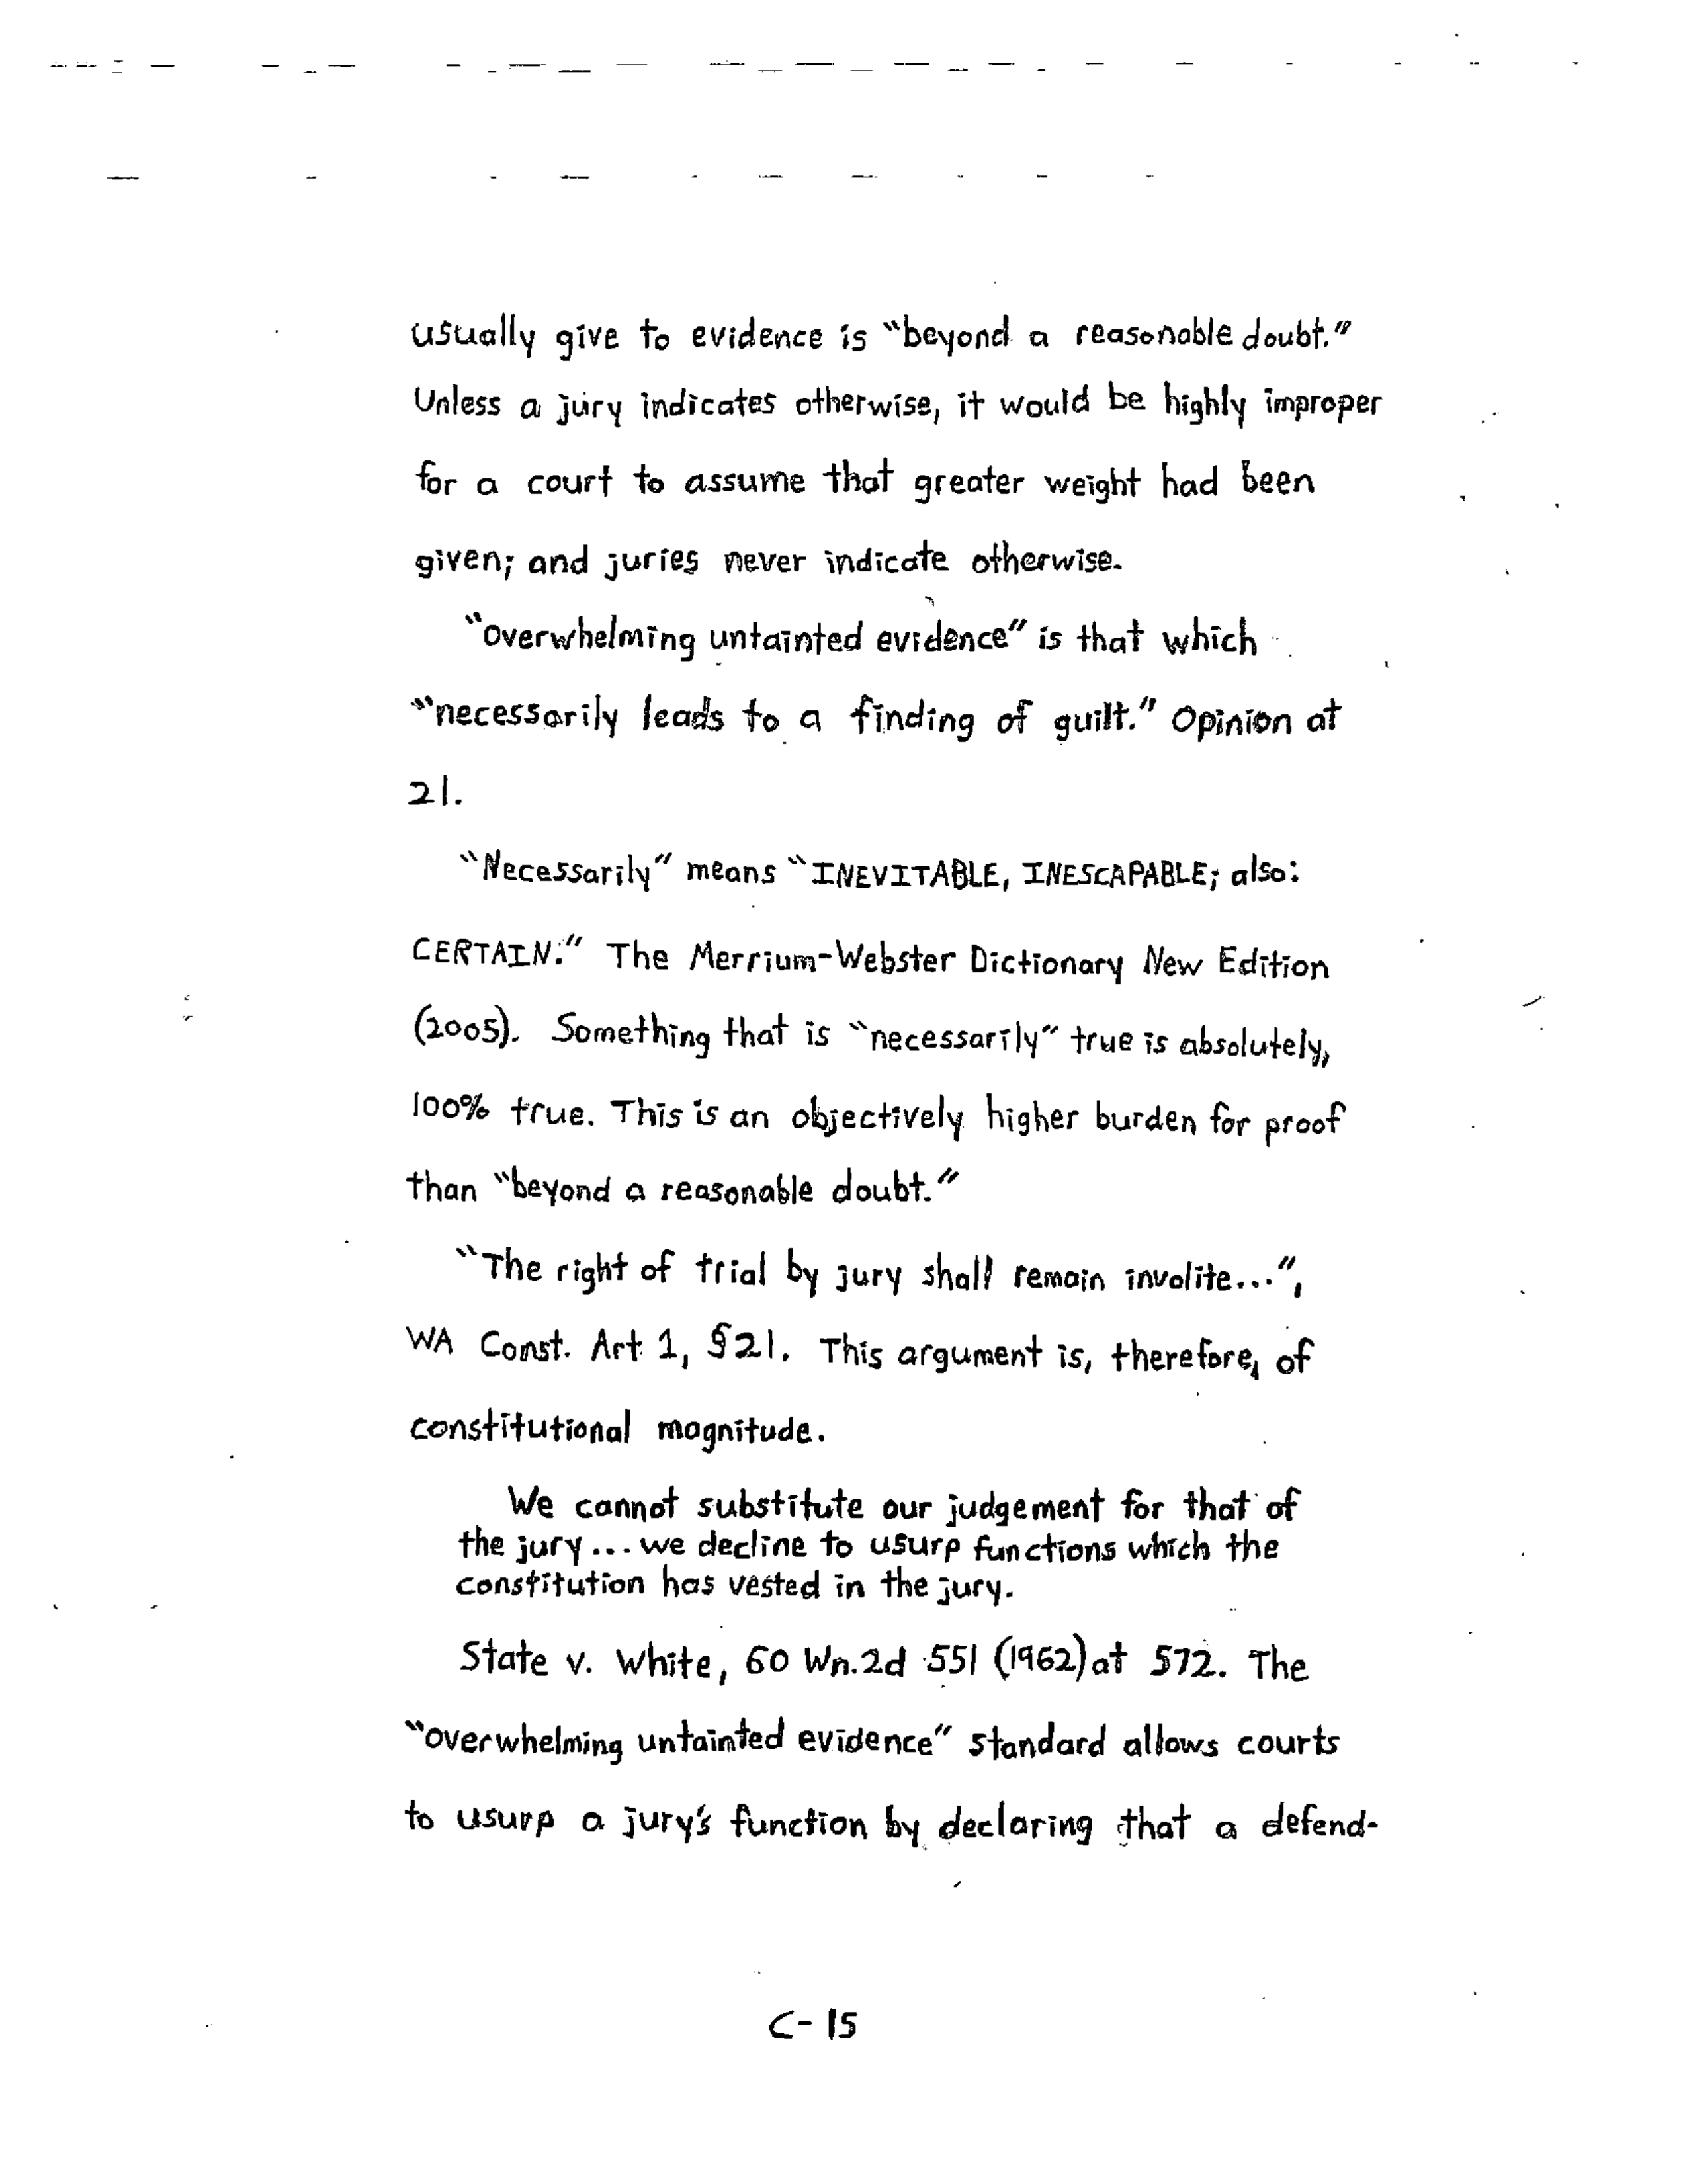 usually give to evidence is "beyond a reasonable doubt."
Unless a jury indicates otherwise, it would be highly improper
for a court to assume that greater weight had been
given; and juries never indicate otherwise.
"overwhelming untainted evidence" is that which
"necessarily leads to a finding of guilt." Opinion at
21.
"Necessarily" means "INEVITABLE, INESCAPABLE; also:
CERTAIN." The Merrium-Webster Dictionary New Edition
(2005). Something that is "necessarily" true is absolutely,
100% true. This is an objectively higher burden for proof
than "beyond a reasonable doubt."
"The right of trial by jury shall remain involite...",
WA Const. Art 1, §21. This argument is, therefore, of
constitutional magnitude.
We cannot substitute our judgement for that of
the jury... we decline to usurp functions which the
constitution has vested in the jury.
State v. White, 60 Wn.2d 551 (1962) at 572. The
"overwhelming untainted evidence" standard allows courts
to usurp a jury's function by declaring that a defend-
C-15